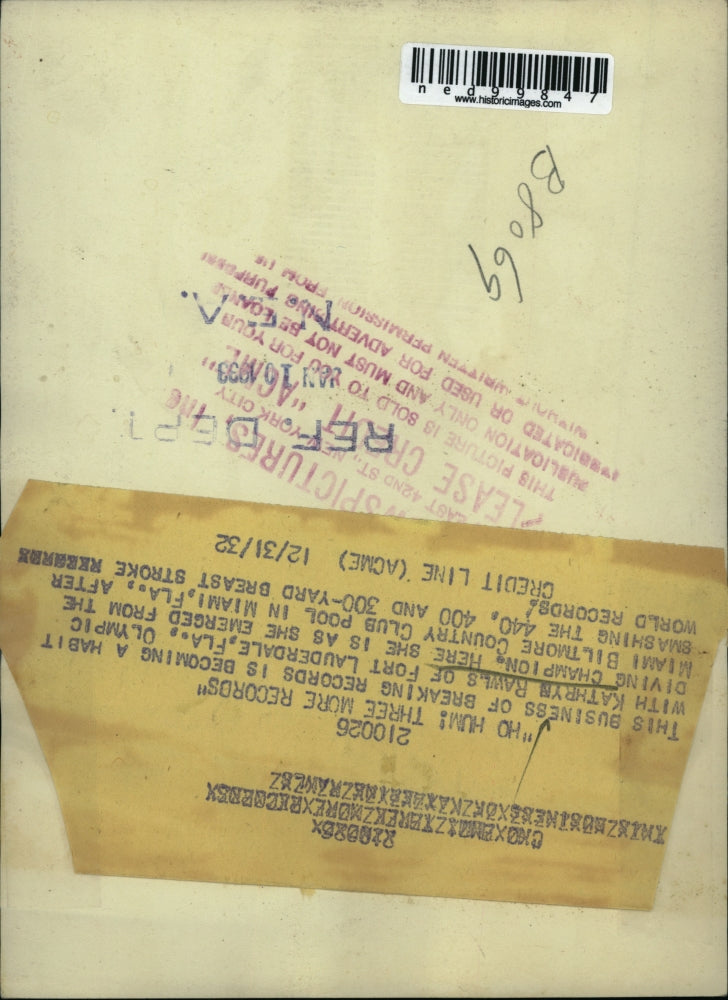 ned99847
www.historicimages.com
B 80 69
N.E.A.
JAN 10 1933
REF DEPT.
NEWSPICTURES, INC
EAST 42ND ST., NEW YORK CITY
PLEASE CREDIT "ACME"
THIS PICTURE IS SOLD TO YOU FOR YOUR
PUBLICATION ONLY AND MUST NOT BE LOANED
SYNDICATED OR USED FOR ADVERTISING PURPOSES
WITHOUT WRITTEN PERMISSION FROM US
210026
"HO HUM! THREE MORE RECORDS"
THIS BUSINESS OF BREAKING RECORDS IS BECOMING A HABIT
WITH KATHRYN RAWLS OF FORT LAUDERDALE,FLA., OLYMPIC
DIVING CHAMPION. HERE SHE IS AS SHE EMERGED FROM THE
MIAMI BILTMORE COUNTRY CLUB POOL IN MIAMI,FLA., AFTER
SMASHING THE 440, 400 AND 300-YARD BREAST STROKE
WORLD RECORDS.
CREDIT LINE (ACME) 12/31/32